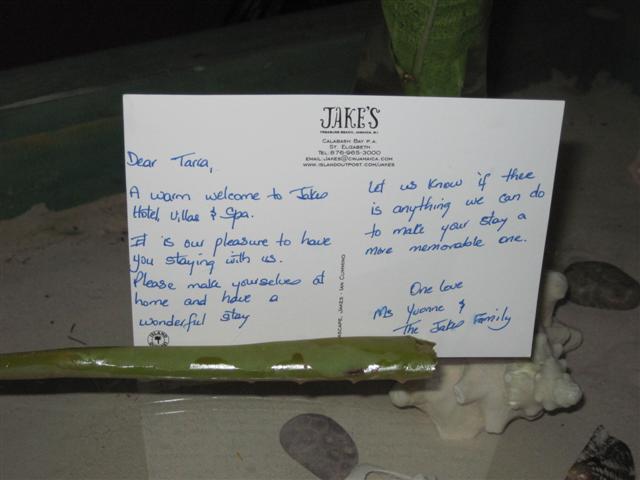 JAKE'S
TREASURE BEACH, JAMAICA, W.I.
CALABASH BAY P.A.
ST. ELIZABETH
TEL: 876-965-3000
EMAIL: JAKES@CWJAMAICA.COM
WWW.ISLANDOUTPOST.COM/JAKES
Dear Tarra,
A warm welcome to Jakes
Hotel, Villas & Spa.
It is our pleasure to have
you staying with us.
Please make yourselves at
home and have a
wonderful stay
Let us know if thee
is anything we can do
to make your stay a
more memorable one.
One love
Ms Yvonne &
The Jakes Family
SCAPE, JAKES - IAN CUMMING
ISLAND